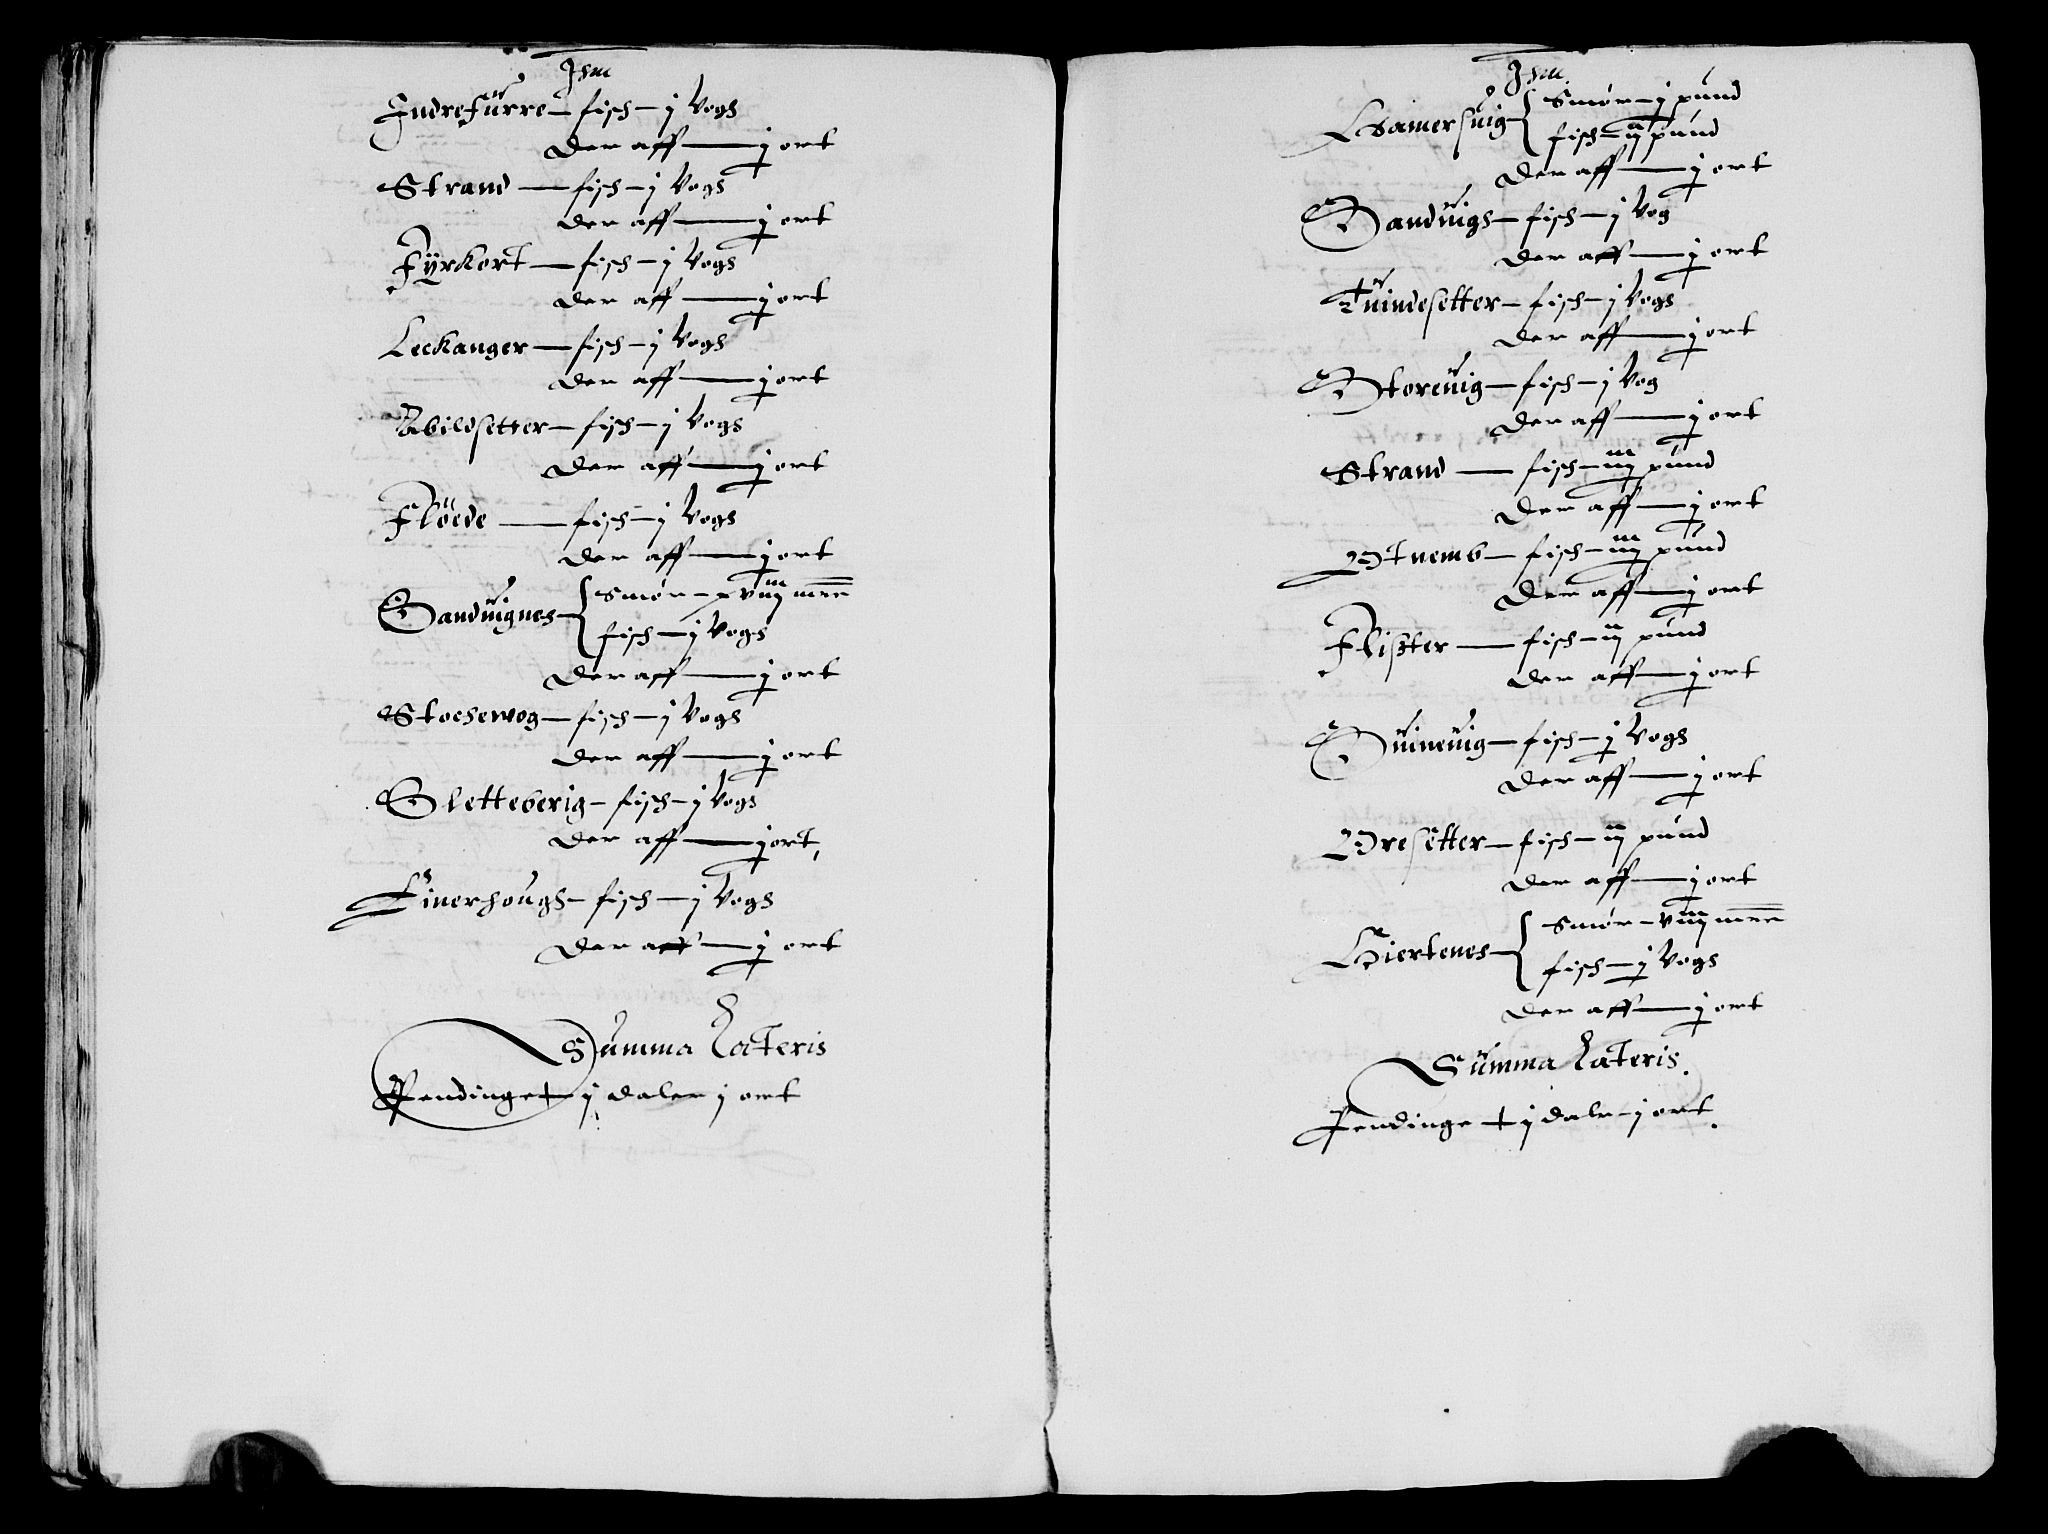 Jtem
Jndrefurre — fisch — j Vogs
Der aff — j ort
Strand — fisch — j Vogs
Der aff — j ort
Fyrkort — fisch — j Vogs
Der aff — j ort
Leckanger — fisch — j Vogs
Der aff — j ort
Abildsetter — fisch — j Vogs
Der aff — j ort
Flöede — fisch — j Vogs
Der aff — j ort
Sanduignes — Smör — xviij mrk
fisch — j Vogs
Der aff — j ort
Stochewog — fisch — j Vogs
Der aff — j ort
Sletteberig — fisch — j Vogs
Der aff — j ort,
Einerhougs — fisch — j Vogs
Der aff — j ort
Summa Lateris
Pendinge — j daler j ort
Jtem.
Hamersuig — Smör — j pund
fisch — ij pund
Der aff — j ort
Sanduigs — fisch — j Vog
Der aff — j ort
Tuindesetter — fisch — j Vogs
Der aff — j ort
Storeuig — fisch — j Vog
Der aff — j ort
Strand — fisch — iij pund
Der aff — j ort
Otnemb — fisch — iij pund
Der aff — j ort
Flister — fisch — ij pund
Der aff — j ort
Suineuig — fisch — j Vogs
Der aff — j ort
Oresetter — fisch — ij pund
Der aff — j ort
Hiertenes — Smör — viij mrk
fisch — j Vogs
Der aff — j ort
Summa Lateris.
Pendinge — j dalr — j ort.